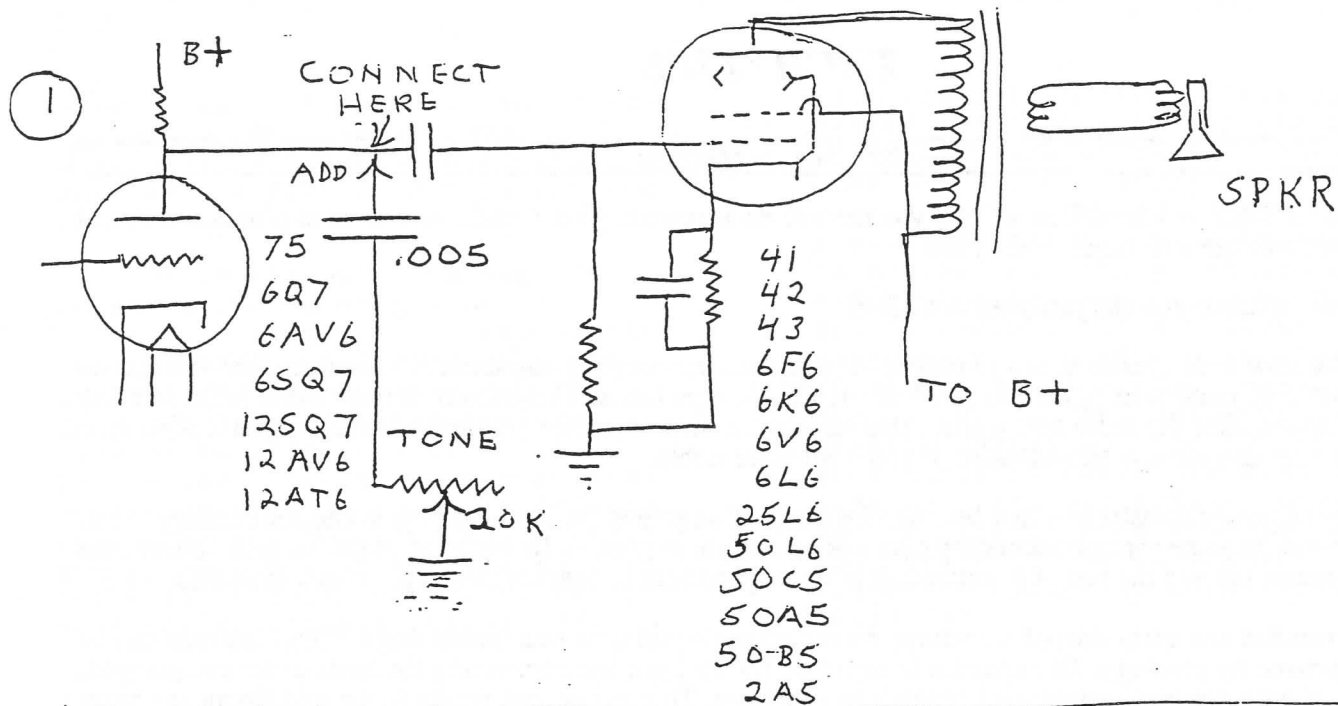 1
B+
CONNECT
HERE
ADD
.005
75
6Q7
6AV6
6SQ7
12SQ7
12AV6
12AT6
TONE
20K
41
42
43
6F6
6K6
6V6
6L6
25L6
50L6
50C5
50A5
50-B5
2A5
TO B+
SPKR